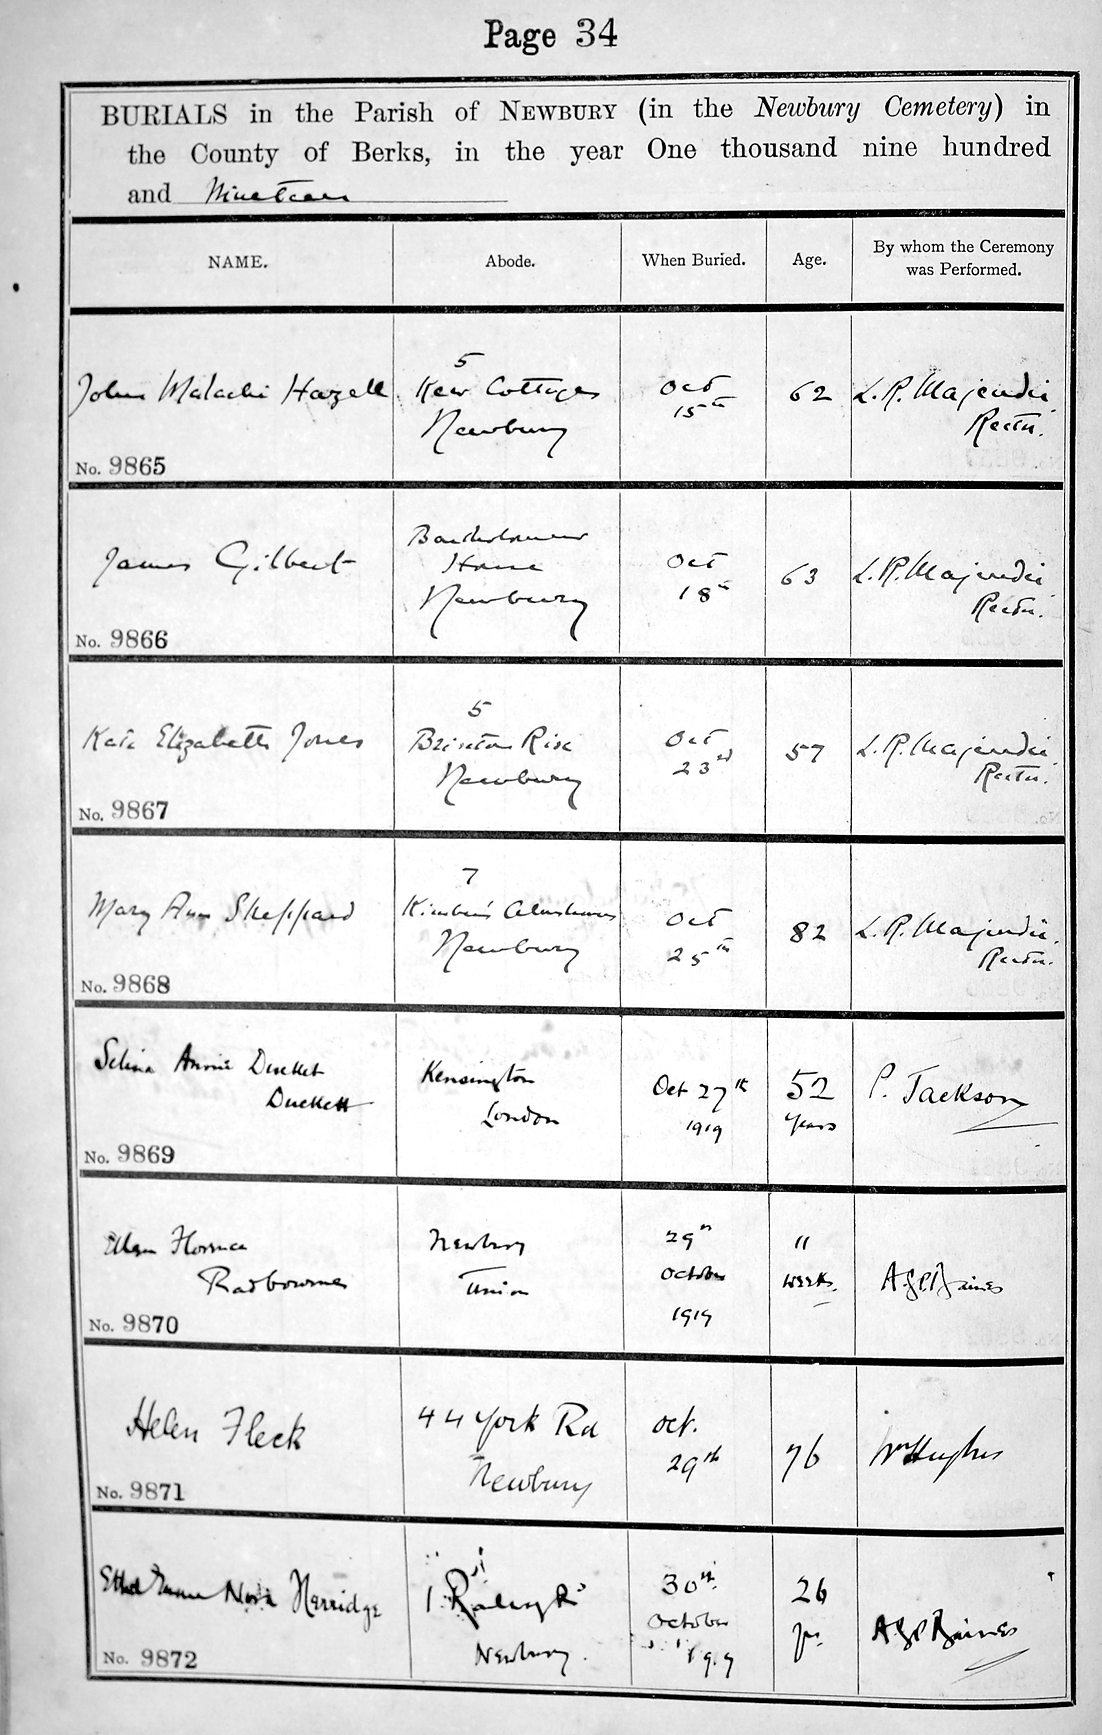 Page 34
BURIALS in the Parish of NEWBURY (in the Newbury Cemetery) in
the County of Berks, in the year One thousand nine hundred
and Nineteen
NAME.
Abode.
When Buried.
Age.
By whom the Ceremony
was Performed.
John Malachi Hazell
No. 9865
5
Kew Cottages
Newbury
Oct
15th
62
L. R. Majendie
Rector.
James Gilbert
No. 9866
Bartholomew
House
Newbury
Oct
18th
63
L. R. Majendie
Rector.
Kate Elizabeth Jones
No. 9867
5
Brixton Rise
Newbury
Oct
23rd
57
L. R. Majendie
Rector.
Mary Ann Sheppard
No. 9868
7
Kimber's Almshouses
Newbury
Oct
25th
82
L. R. Majendie.
Rector.
Selina Annie Ducket
Duckett
No. 9869
Kensington
London
Oct 27th
1919
52
years
P. Jackson
Ellen Florence
Radbourne
No. 9870
Newbury
Union
29th
October
1919
11
weeks.
Baines
Helen Fleck
No. 9871
44 York Rd
Newbury
Oct.
29th
76
Wm Hughes
Ethel Nora Herridge
No. 9872
1
Newbury.
30th
October
1919
26
yrs.
Baines